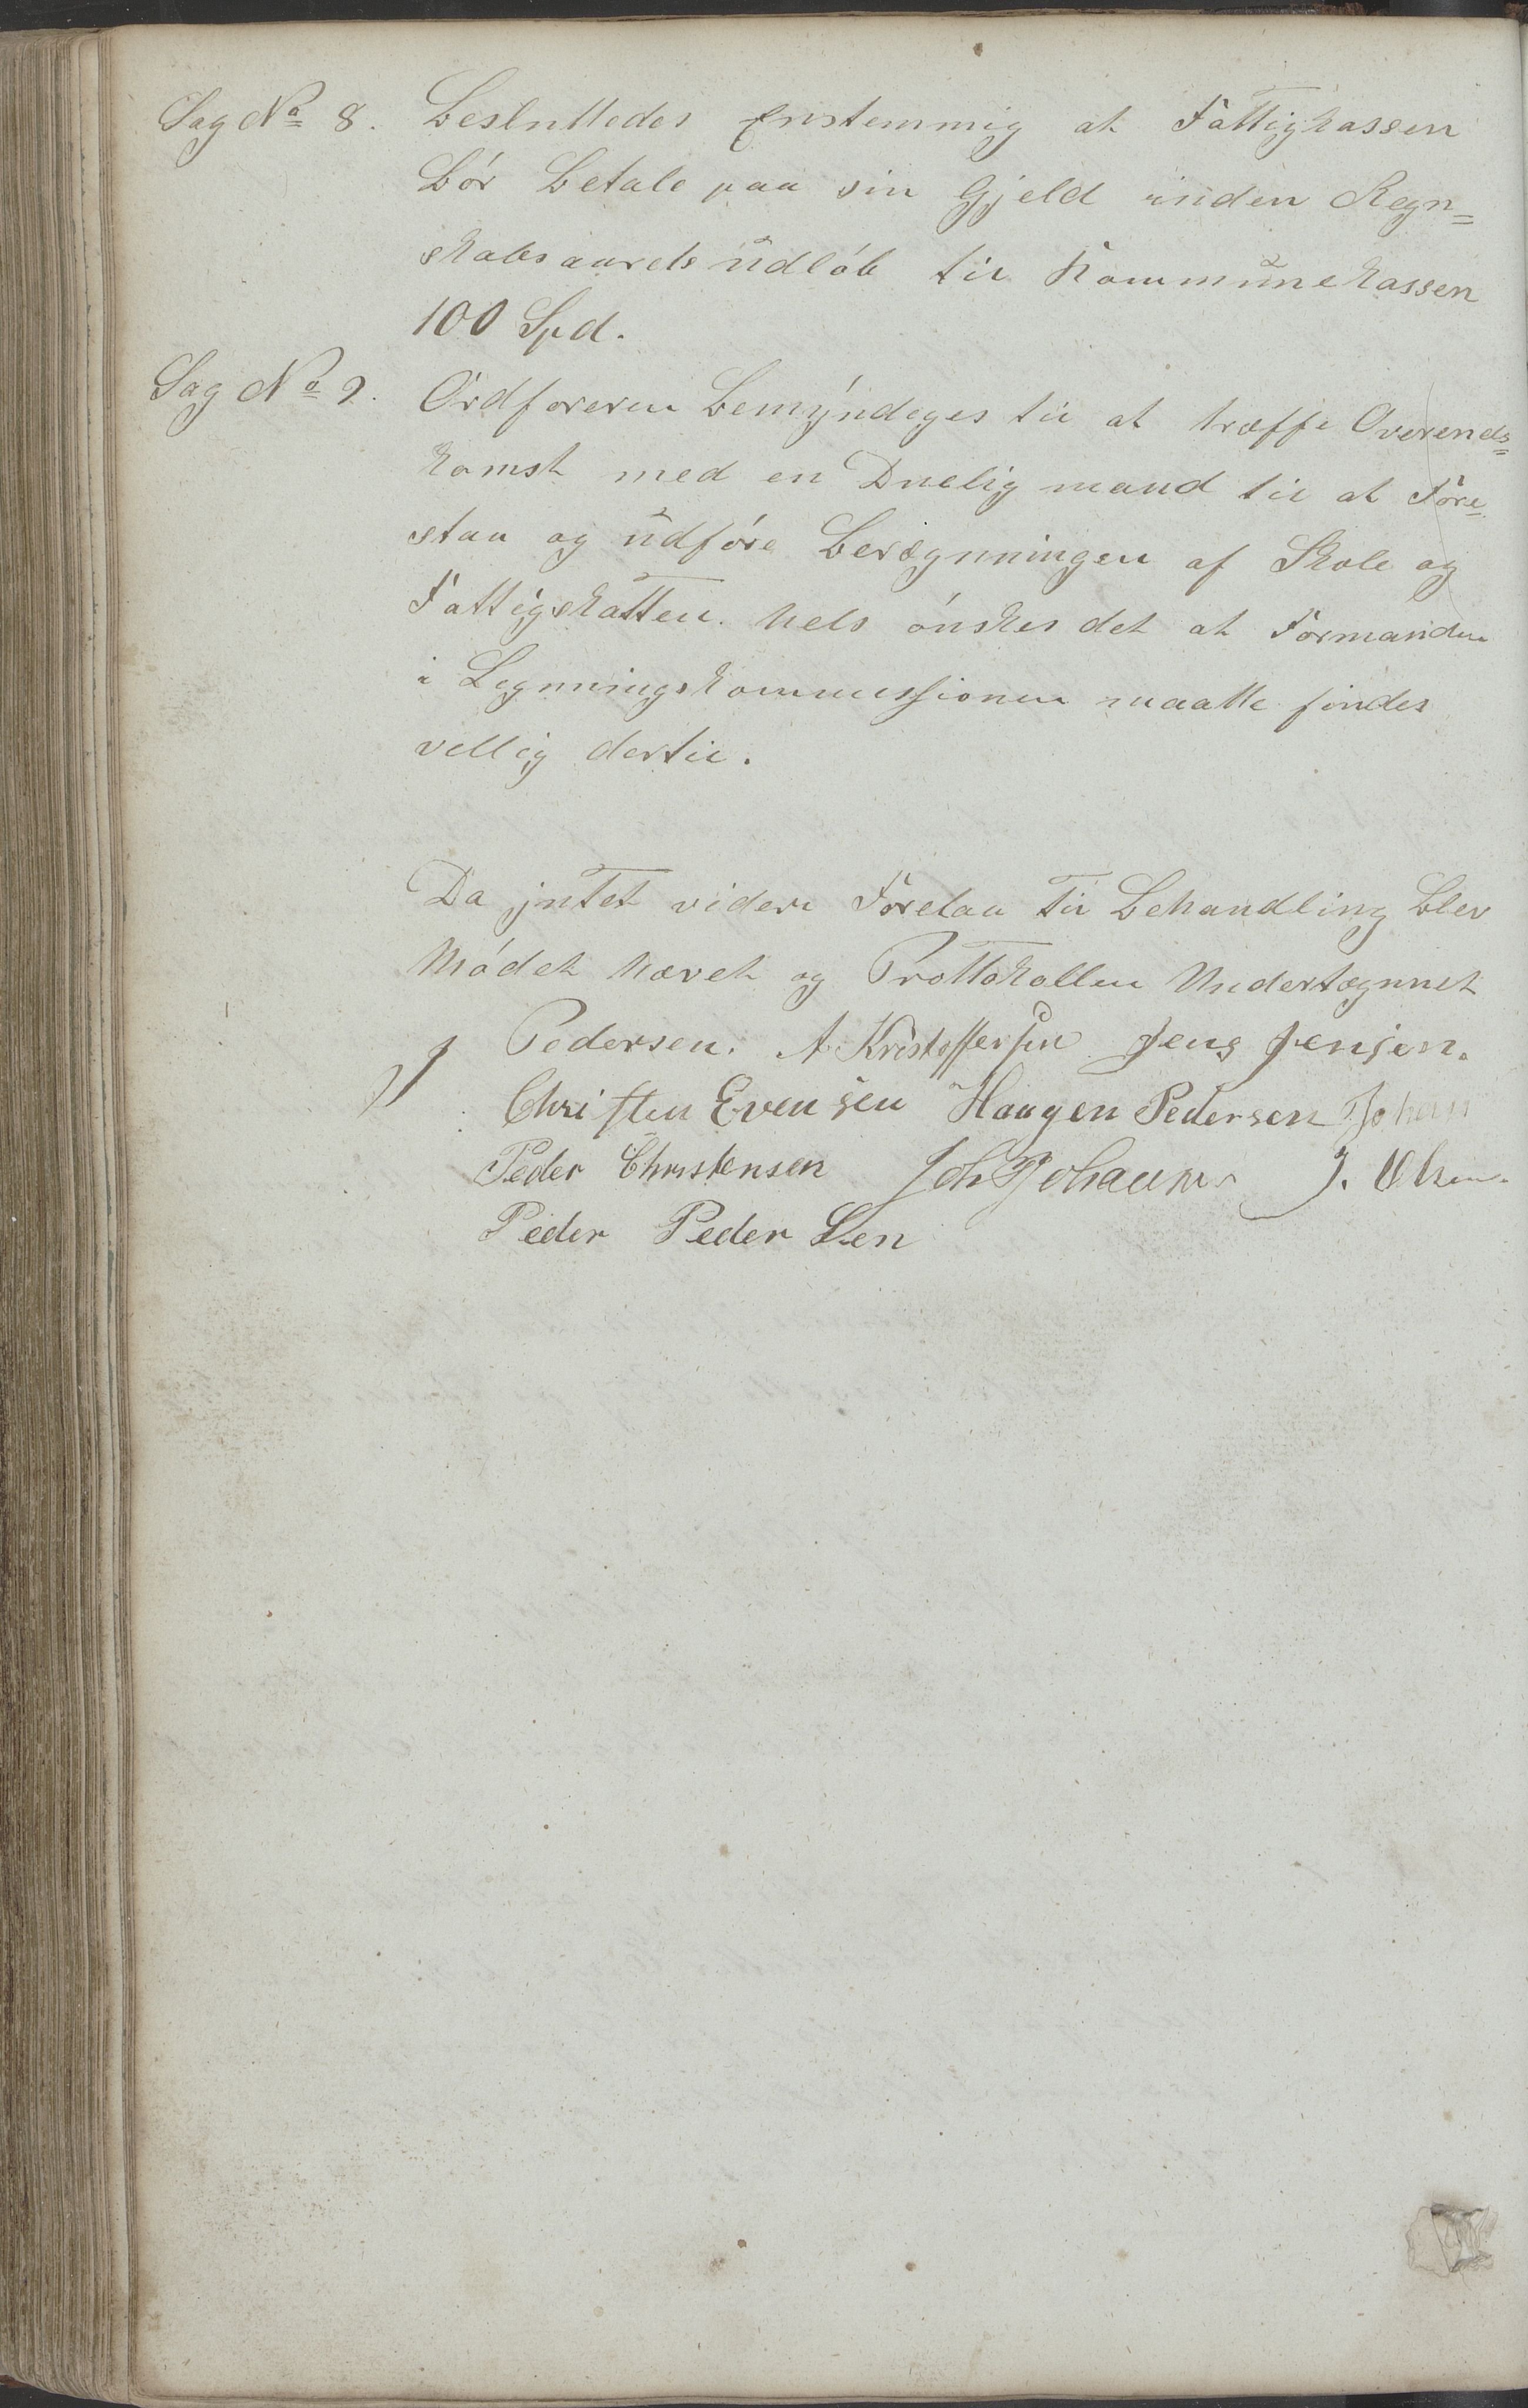 Sag No 8. Besluttedes Enstemmig at Fattigkassen
bör Betale paa sin Gjeld inden Regn=
skabsaarets Udlöb til Kommunekassen
100 Spd.
Sag No 9. Ordföreren Bemyndiges til at træffe Overends=
komst med en Duelig mand til at Före=
staa og udföre Beregnningen af Skole og
Fattigskatten. Helst önskes det at Formanden
i Legnningskommissionen maatte findes
vellig dertil.
Da jntet videre Forelaa til Behandling blev
Mödet hævet og Prottokollen Undertegnnet
J Pedersen. A. Kristoffersen Jens Jensen.
Christen Evensen Haagen Pedersen Johan
Peder Christensen Joh Johannes J. Olsen.
Peder Peder Sen